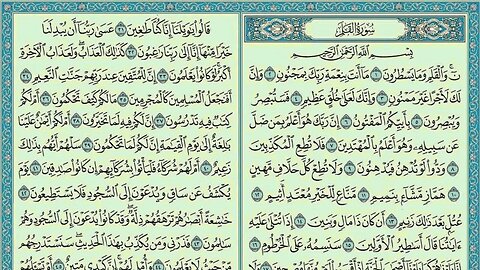 سُورَةُ القَلَمِ
بِسْمِ اللَّهِ الرَّحْمَٰنِ الرَّحِيمِ
نٓ وَالْقَلَمِ وَمَا يَسْطُرُونَ ١ مَا أَنتَ بِنِعْمَةِ رَبِّكَ بِمَجْنُونٍ ٢ وَإِنَّ
لَكَ لَأَجْرًا غَيْرَ مَمْنُونٍ ٣ وَإِنَّكَ لَعَلَىٰ خُلُقٍ عَظِيمٍ ٤ فَسَتُبْصِرُ
وَيُبْصِرُونَ ٥ بِأَييِّكُمُ الْمَفْتُونُ ٦ إِنَّ رَبَّكَ هُوَ أَعْلَمُ بِمَن ضَلَّ
عَن سَبِيلِهِ وَهُوَ أَعْلَمُ بِالْمُهْتَدِينَ ٧ فَلَا تُطِعِ الْمُكَذِّبِينَ
٨ وَدُّوا لَوْ تُدْهِنُ فَيُدْهِنُونَ ٩ وَلَا تُطِعْ كُلَّ حَلَّافٍ مَّهِينٍ
١٠ هَمَّازٍ مَّشَّاءٍ بِنَمِيمٍ ١١ مَّنَّاعٍ لِّلْخَيْرِ مُعْتَدٍ أَثِيمٍ ١٢
عُتُلٍّ بَعْدَ ذَٰلِكَ زَنِيمٍ ١٣ أَن كَانَ ذَا مَالٍ وَبَنِينَ ١٤ إِذَا تُتْلَىٰ عَلَيْهِ
ءَايَٰتُنَا قَالَ أَسَٰطِيرُ الْأَوَّلِينَ ١٥ سَنَسِمُهُ عَلَى الْخُرْطُومِ ١٦
قَالُوا يَٰوَيْلَنَا إِنَّا كُنَّا طَٰغِينَ ٣١ عَسَىٰ رَبُّنَا أَن يُبْدِلَنَا
خَيْرًا مِّنْهَا إِنَّا إِلَىٰ رَبِّنَا رَٰغِبُونَ ٣٢ كَذَٰلِكَ الْعَذَابُ وَلَعَذَابُ الْآخِرَةِ
أَكْبَرُ لَوْ كَانُوا يَعْلَمُونَ ٣٣ إِنَّ لِلْمُتَّقِينَ عِندَ رَبِّهِمْ جَنَّٰتِ النَّعِيمِ ٣٤
أَفَنَجْعَلُ الْمُسْلِمِينَ كَالْمُجْرِمِينَ ٣٥ مَا لَكُمْ كَيْفَ تَحْكُمُونَ ٣٦ أَمْ لَكُمْ
كِتَٰبٌ فِيهِ تَدْرُسُونَ ٣٧ إِنَّ لَكُمْ فِيهِ لَمَا تَخَيَّرُونَ ٣٨ أَمْ لَكُمْ أَيْمَٰنٌ عَلَيْنَا
بَٰلِغَةٌ إِلَىٰ يَوْمِ الْقِيَٰمَةِ إِنَّ لَكُمْ لَمَا تَحْكُمُونَ ٣٩ سَلْهُمْ أَيُّهُم بِذَٰلِكَ
زَعِيمٌ ٤٠ أَمْ لَهُمْ شُرَكَاءُ فَلْيَأْتُوا بِشُرَكَائِهِمْ إِن كَانُوا صَٰدِقِينَ ٤١ يَوْمَ
يُكْشَفُ عَن سَاقٍ وَيُدْعَوْنَ إِلَى السُّجُودِ فَلَا يَسْتَطِيعُونَ ٤٢
خَٰشِعَةً أَبْصَٰرُهُمْ تَرْهَقُهُمْ ذِلَّةٌ وَقَدْ كَانُوا يُدْعَوْنَ إِلَى السُّجُودِ وَهُمْ
سَٰلِمُونَ ٤٣ فَذَرْنِي وَمَن يُكَذِّبُ بِهَٰذَا الْحَدِيثِ سَنَسْتَدْرِجُهُم
مِّنْ حَيْثُ لَا يَعْلَمُونَ ٤٤ وَأُمْلِي لَهُمْ إِنَّ كَيْدِي مَتِينٌ ٤٥